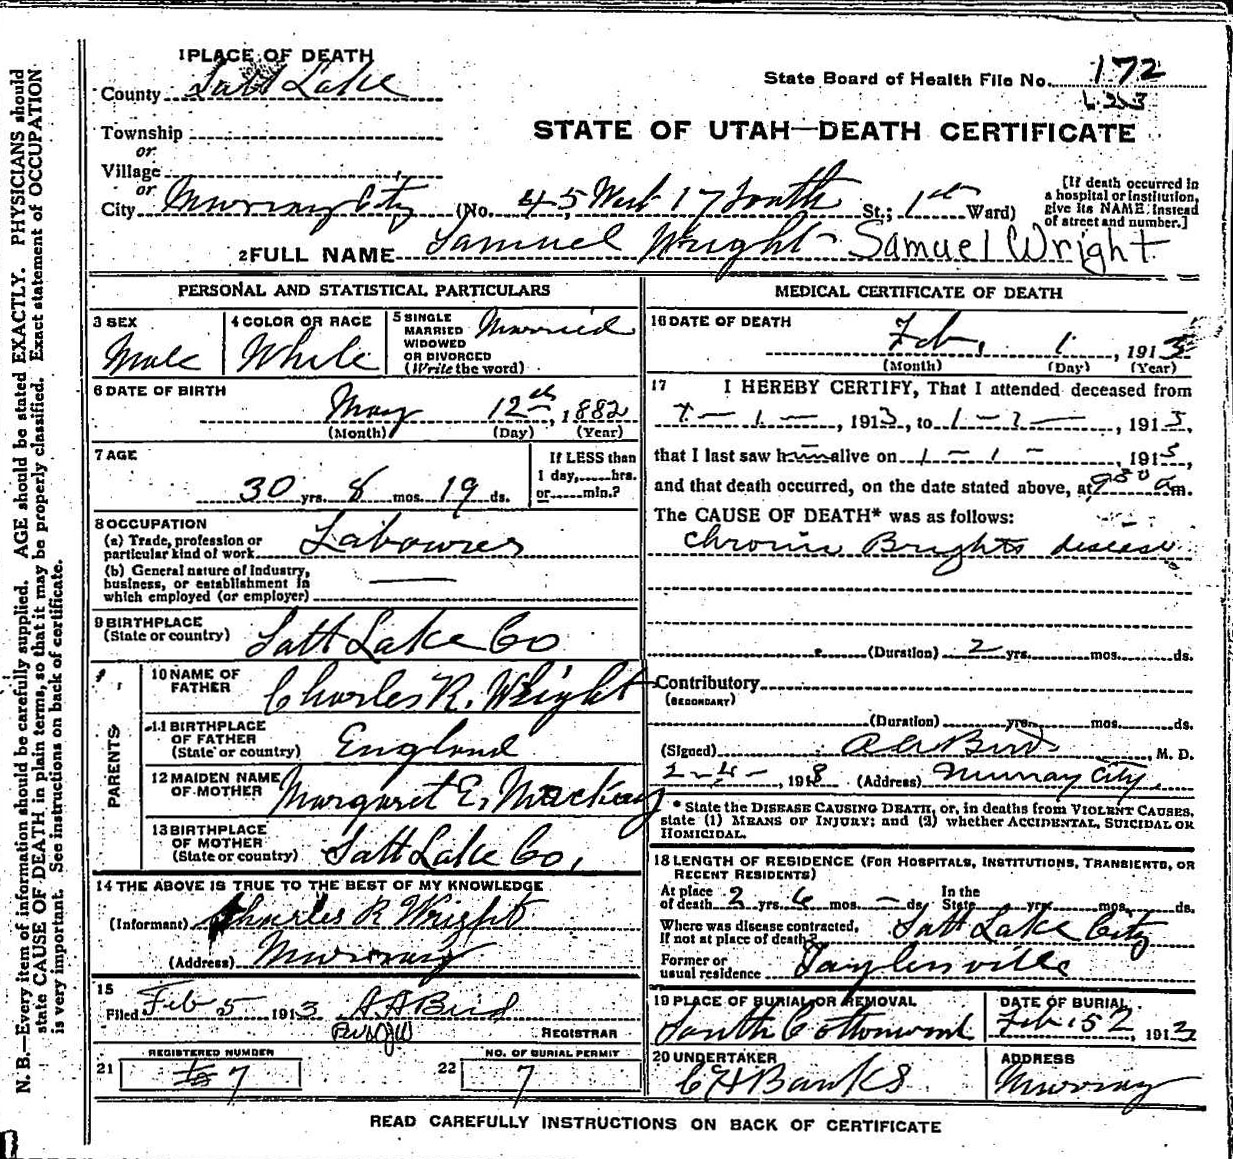 1 PLACE OF DEATH
County Salt Lake
State Board of Health File No. 172
Township
or
Village
or
STATE OF UTAH—DEATH CERTIFICATE
City Murray City (No. 45 West 17 South St.; 1st Ward)
[If death occurred in
a hospital or institution,
give its NAME instead
of street and number.]
2 FULL NAME Samuel Wright - Samuel Wright
PERSONAL AND STATISTICAL PARTICULARS
3 SEX
Male
4 COLOR OR RACE
White
5 SINGLE
MARRIED
WIDOWED
OR DIVORCED
(Write the word)
Married
6 DATE OF BIRTH
May 12th, 1882
(Month) (Day) (Year)
7 AGE
30 yrs. 8 mos. 19 ds.
If LESS than
1 day, hrs.
or min.?
8 OCCUPATION
(a) Trade, profession or
particular kind of work Labourer
(b) General nature of industry,
business, or establishment in
which employed (or employer)
9 BIRTHPLACE
(State or country) Salt Lake Co
PARENTS
10 NAME OF
FATHER Charles R. Wright
11 BIRTHPLACE
OF FATHER
(State or country) England
12 MAIDEN NAME
OF MOTHER Margaret E. Mackay
13 BIRTHPLACE
OF MOTHER
(State or country) Salt Lake Co,
14 THE ABOVE IS TRUE TO THE BEST OF MY KNOWLEDGE
(Informant) Charles R Wright
(Address) Murray
15
Filed Feb 5 1913 A A Bird
REGISTRAR
21 REGISTERED NUMBER
7
22 NO. OF BURIAL PERMIT
7
MEDICAL CERTIFICATE OF DEATH
16 DATE OF DEATH
Feb. 1, 1913
(Month) (Day) (Year)
17 I HEREBY CERTIFY, That I attended deceased from
1 —, 1913, to 1 — 1 —, 1913,
that I last saw him alive on 1 — 1 —, 1913,
and that death occurred, on the date stated above, at 9 30 a m.
The CAUSE OF DEATH* was as follows:
Chronic Brights disease
(Duration) 2 yrs. mos. ds.
Contributory
(SECONDARY)
(Duration) yrs. mos. ds.
(Signed) A A Bird, M. D.
2-4-, 1918 (Address) Murray City
* State the DISEASE CAUSING DEATH, or, in deaths from VIOLENT CAUSES,
state (1) MEANS OF INJURY; and (2) whether ACCIDENTAL, SUICIDAL OR
HOMICIDAL.
18 LENGTH OF RESIDENCE (FOR HOSPITALS, INSTITUTIONS, TRANSIENTS, OR
RECENT RESIDENTS)
At place
of death 2 yrs. 6 mos. — ds.
In the
State yrs. mos. ds.
Where was disease contracted,
If not at place of death? Salt Lake City
Former or
usual residence Taylorsville
19 PLACE OF BURIAL OR REMOVAL
South Cottonwood
DATE OF BURIAL
Feb. 1913
20 UNDERTAKER
C H Banks
ADDRESS
Murray
READ CAREFULLY INSTRUCTIONS ON BACK OF CERTIFICATE
N. B.—Every item of information should be carefully supplied. AGE should be stated EXACTLY. PHYSICIANS should
state CAUSE OF DEATH in plain terms, so that it may be properly classified. Exact statement of OCCUPATION
is very important. See instructions on back of certificate.